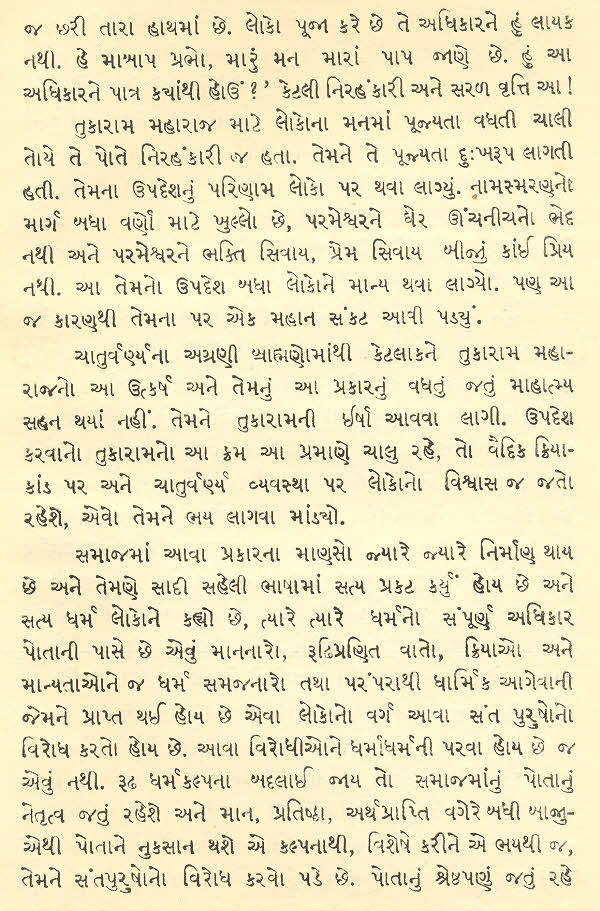 જ છરી તારા હાથમાં છે. લોકો પૂજા કરે છે તે અધિકારને હું લાયક
નથી. હે માબાપ પ્રભો, મારું મન મારાં પાપ જાણે છે. હું આ
અધિકારને પાત્ર ક્યાંથી હોઉં?’ કેટલી નિરહંકારી અને સરળ વૃત્તિ આ!
તુકારામ મહારાજ માટે લોકોના મનમાં પૂજ્યતા વધતી ચાલી
તોયે તે પોતે નિરહંકારી જ હતા. તેમને તે પૂજ્યતા દુઃખરૂપ લાગતી
હતી. તેમના ઉપદેશનું પરિણામ લોકો પર થવા લાગ્યું. નામસ્મરણનો
માર્ગ બધા વર્ણો માટે ખુલ્લો છે, પરમેશ્વરને ઘેર ઊંચનીચનો ભેદ
નથી અને પરમેશ્વરને ભક્તિ સિવાય, પ્રેમ સિવાય બીજું કાંઈ પ્રિય
નથી. આ તેમનો ઉપદેશ બધા લોકોને માન્ય થવા લાગ્યો. પણ આ
જ કારણથી તેમના પર એક મહાન સંકટ આવી પડયું.
ચાતુર્વર્ણ્યના અગ્રણી બ્રાહ્મણોમાંથી કેટલાકને તુકારામ મહા-
રાજનો આ ઉત્કર્ષ અને તેમનું આ પ્રકારનું વધતું જતું માહાત્મ્ય
સહન થયાં નહીં. તેમને તુકારામની ઈર્ષા આવવા લાગી. ઉપદેશ
કરવાનો તુકારામનો આ ક્રમ આ પ્રમાણે ચાલુ રહે, તો વૈદિક ક્રિયા-
કાંડ પર અને ચાતુર્વર્ણ્ય વ્યવસ્થા પર લોકોનો વિશ્વાસ જ જતો
રહેશે, એવો તેમને ભય લાગવા માંડ્યો.
સમાજમાં આવા પ્રકારના માણસો જ્યારે જ્યારે નિર્માણ થાય
છે અને તેમણે સાદી સહેલી ભાષામાં સત્ય પ્રકટ કર્યું હોય છે અને
સત્ય ધર્મ લોકોને કહ્યો છે, ત્યારે ત્યારે ધર્મનો સંપૂર્ણ અધિકાર
પોતાની પાસે છે એવું માનનારો, રૂઢિપ્રણિત વાતો, ક્રિયાઓ અને
માન્યતાઓને જ ધર્મ સમજનારો તથા પરંપરાથી ધાર્મિક આગેવાની
જેમને પ્રાપ્ત થઈ હોય છે એવા લોકોનો વર્ગ આવા સંત પુરુષોનો
વિરોધ કરતો હોય છે. આવા વિરોધીઓને ધર્માધર્મની પરવા હોય છે જ
એવું નથી. રૂઢ ધર્મકલ્પના બદલાઈ જાય તો સમાજમાંનું પોતાનું
નેતૃત્વ જતું રહેશે અને માન, પ્રતિષ્ઠા, અર્થપ્રાપ્તિ વગેરે બધી બાજુ-
એથી પોતાને નુકસાન થશે એ કલ્પનાથી, વિશેષે કરીને એ ભયથી જ,
તેમને સંતપુરુષોનો વિરોધ કરવો પડે છે. પોતાનું શ્રેષ્ઠપણું જતું રહે